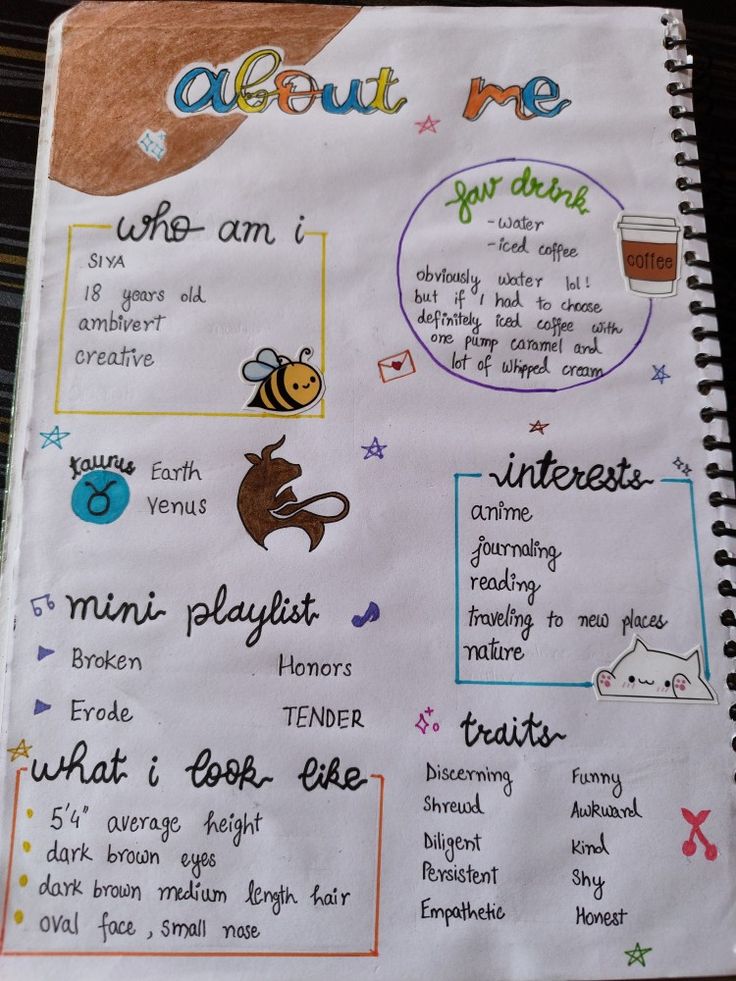 about me
who am i
SIYA
18 years old
ambivert
creative
fav drink
-water
-iced coffee
obviously water lol!
but if I had to choose
definitely iced coffee with
one pump caramel and
lot of whipped cream
coffee
taurus
Earth
Venus
interests
anime
journaling
reading
traveling to new places
nature
mini playlist
Broken
Honors
Erode
TENDER
what i look like
5'4" average height
dark brown eyes
dark brown medium length hair
oval face, small nose
traits
Discerning
Funny
Shrewd
Awkward
Diligent
Kind
Persistent
Shy
Empathetic
Honest